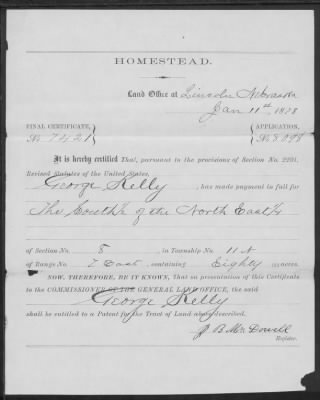 HOMESTEAD.
Land Office at Lincoln Nebraska
Jan 11th, 1878
FINAL CERTIFICATE, APPLICATION,
No 7421 No
It is hereby certified That, pursuant to the provisions of Section No. 2291,
Revised Statutes of the United States,
George Kelly, has made payment in full for
The South ½ of the North East ¼
of Section No. 8, in Township No. 11 N
of Range No. East, containing Eighty acres.
NOW, THEREFORE, BE IT KNOWN, That on presentation of this Certificate
to the COMMISSIONER OF THE GENERAL LAND OFFICE, the said
George Kelly
shall be entitled to a Patent for the Tract of Land above described.
J B McDowell
Register.